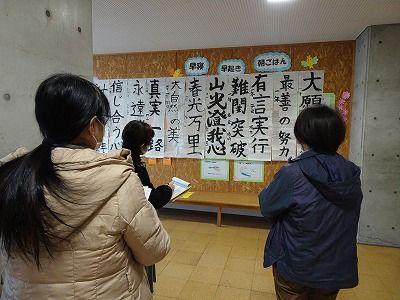 早寝
早起き
朝ごはん
大願
最善の努力
有言実行
難関突破
山火澄我心
春光万里
大自然の美
真実一路
永遠
信じ合う心